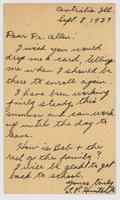 Centralia Ill.
Sept. 8, 1937
Dear Dr. Allen:
I wish you would
drop me a card, telling
me when I should be
there to enroll again.
I have been working
fairly steady this
summer and can work
up until the day to
leave.
How is Dot + the
rest of the family?
I will be glad to get
back to school.
Yours truly